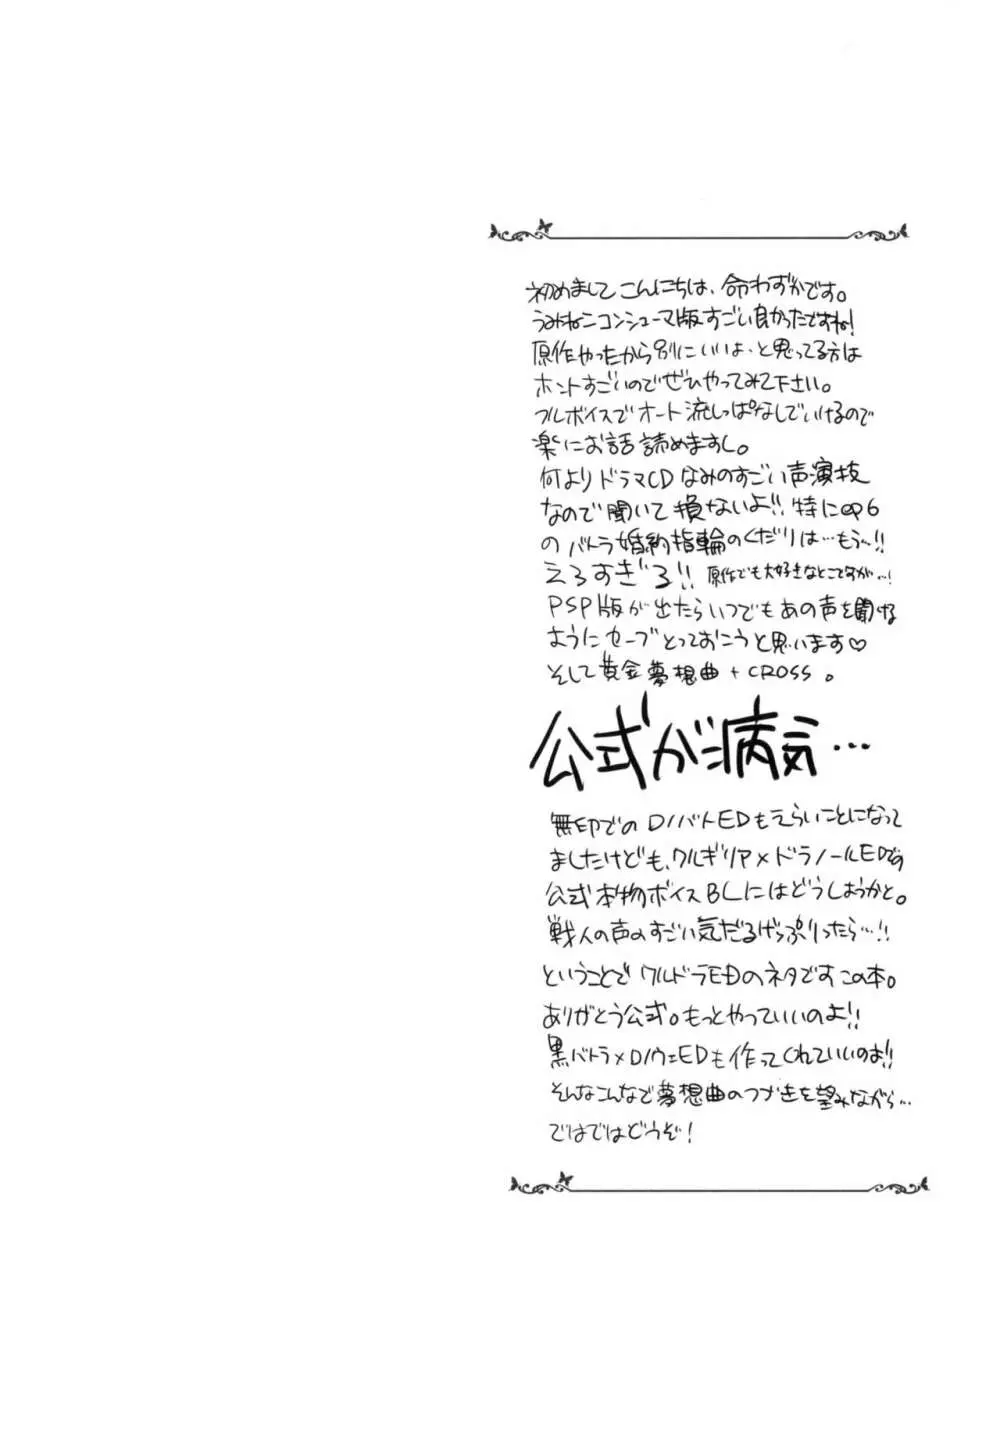 初めましてこんにちは、命わずかです。
うみねこコンシューマ版すごい良かったですね!
原作やったから別にいいよ、と思ってる方は
ホントすごいのでぜひやってみて下さい。
フルボイスでオート流しっぱなしでいけるので
楽にお話読めますし。
何よりドラマCDなみのすごい声演技
なので聞いて損ないよ!!特にep6
のバトラ婚約指輪のくだりは…もう〜!!
えろすぎろ!!原作でも大好きなとこですが…!
PSP版が出たらいつでもあの声を聞ける
ようにセーブとっておこうと思います♡
そして黄金夢想曲+CROSS。
公式が病気…
無印でのロノバトEDもえらいことになって
ましたけども、ワルギリア×ドラノールEDでの
公式本物ボイスBLにはどうしようかと。
戦人の声のすごい気だるげっぷりったら…!!
ということでワルドラEDのネタですこの本。
ありがとう公式。もっとやっていいのよ!!
黒バトラ×ロノウェEDも作ってくれていいのよ!!
そんなこんなで夢想曲のつづきを望みながら…
ではではどうぞ!